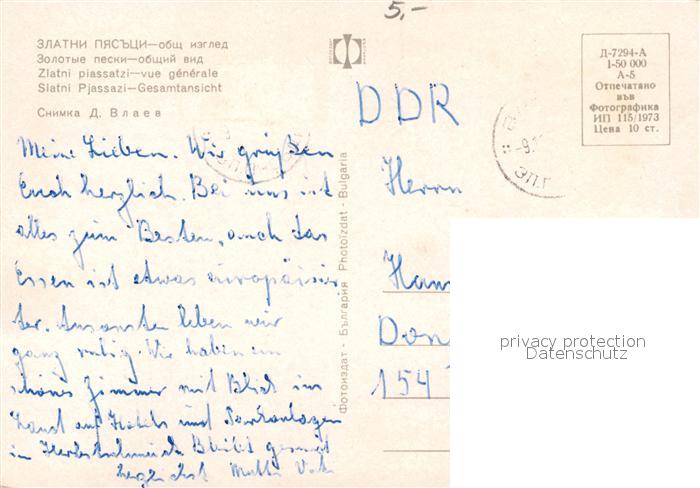 5,-
ЗЛАТНИ ПЯСЪЦИ—общ изглед
Золотые пески—общий вид
Zlatni piassatzi—vue générale
Slatni Pjassazi—Gesamtansicht
Снимка Д. Влаев
Meine Lieben. Wir grüßen
Euch herzlich. Bei uns ist
alles zum Besten, auch das
Essen ist etwas europäisier
ter. Ansonsten leben wir
ganz ruhig. Wir haben ein
schönes Zimmer mit Blick ins
Land auf Hotels und Parkanlagen
im Bleibt gesund
herzlichst Mutti
Фотоиздат - България Photoizdat - Bulgaria
DDR
Herrn
Han
Don
154
-9.
Д-7294-А
1-50 000
А-5
Отпечатано
във
Фотографика
ИП 115/1973
Цена 10 ст.
privacy protection
Datenschutz